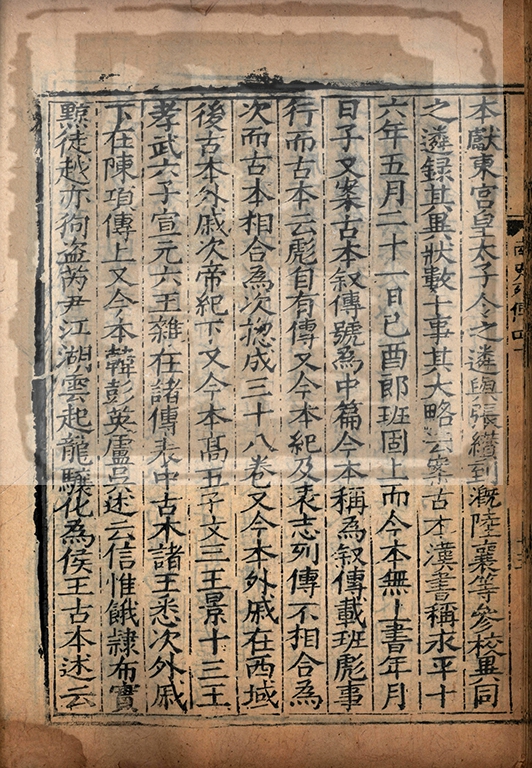 本獻東宫皇太子令之遴與張纘到溉陸襄等參校異同
之遴録其異狀數十事其大略云案古本漢書稱永平十
六年五月二十一日己酉郎班固上而今本無上書年月
日子又案古本叙傳號為中篇今本稱為叙傳載班彪事
行而古本云彪自有傳又今本紀及表志列傳不相合為
次而古本相合為次揔成三十八卷又今本外戚在西域
後古本外戚次帝紀下又今本高五子文三王景十三王
孝武六子宣元六王雜在諸傳表中古本諸王悉次外戚
下在陳項傳上又今本韓彭英盧吳述云信惟餓隷布實
黥徒越亦狗盗芮尹江湖雲起龍驤化為侯王古本述云